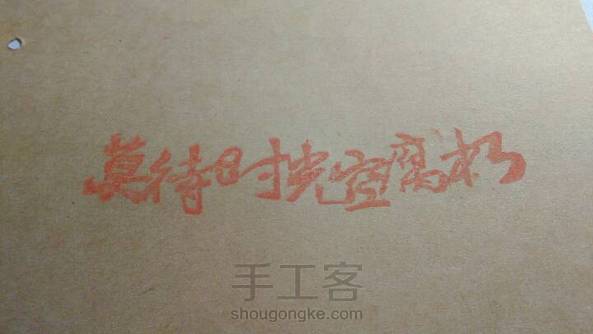 莫待时光空腐朽
手工客
shougongke.com